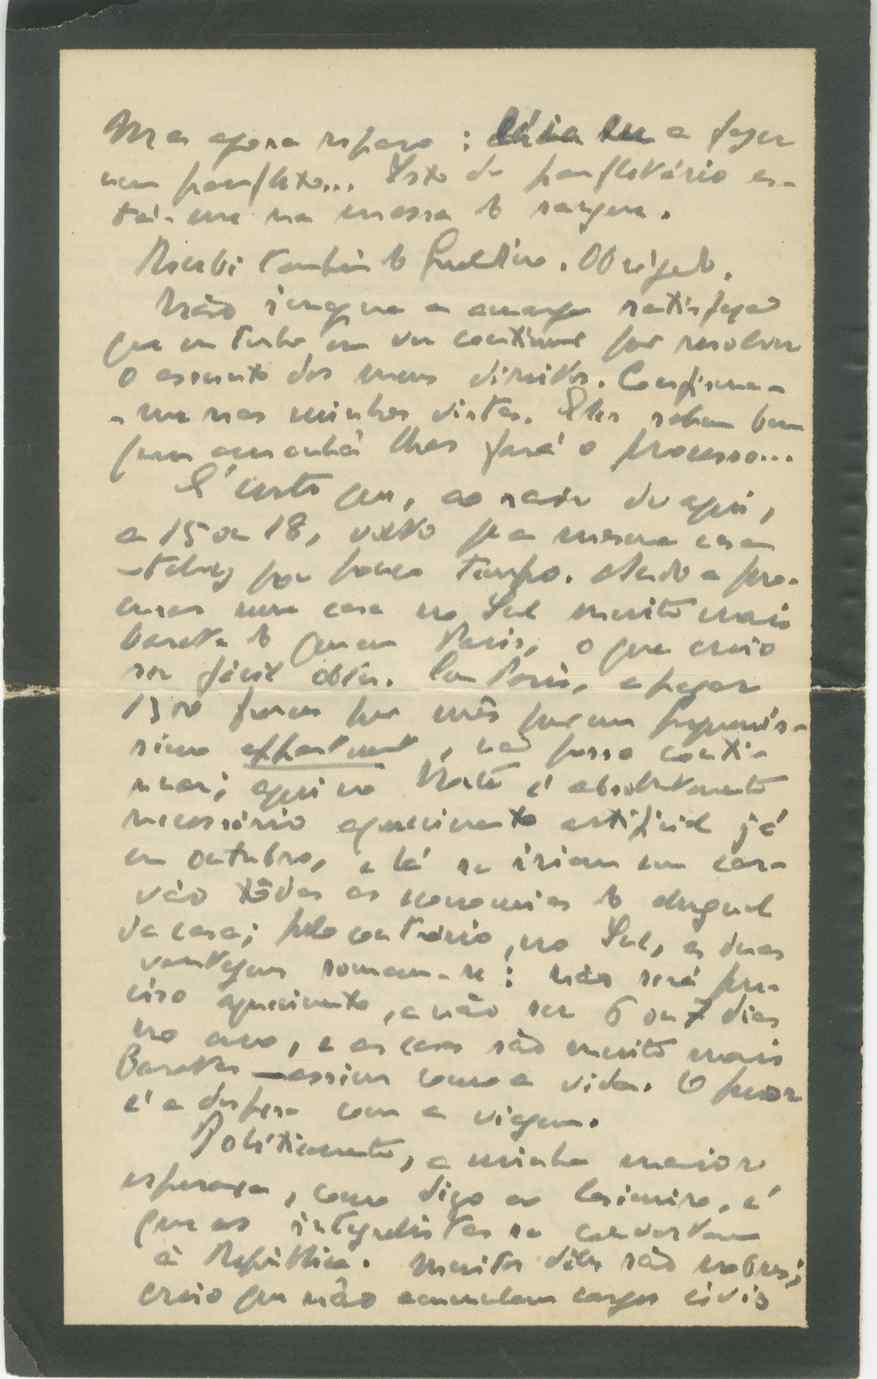 Mas agora reparo: a fazer
um panfleto... Isto de panfletário es-
tá-me na massa do sangue.
Recebi também o Obrigado.
Não imagina a amarga satisfação
que eu tenho em ver continuar por resolver
o assunto dos meus direitos. Confirma-
-me nas minhas vistas. Eles sabem bem
quem amanhã lhes fará o processo...
É certo que, ao sair daqui,
a 15 ou 18, volto pra mesma casa
por pouco tempo. Ando a pro-
curar uma casa no Sul muito mais
barata do que em Paris, o que creio
ser fácil obter. Em Paris, a pagar
francos por mês por um pequenís-
simo appartement, não posso conti-
nuar; aqui no Norte é absolutamente
necessário aquecimento artificial já
em outubro, e lá se iriam em car-
vão tôdas as economias do aluguel
da casa; pelo contrário, no Sul, as duas
vantagens somam-se: não será pre-
ciso aquecimento, a não ser 6 ou 7 dias
no ano, e as casas são muito mais
baratas — assim como a vida. O peor
é a despesa com a viagem.
Politicamente, a minha maior
esperança, como digo ao Casimiro, é
que os integralistas se convertam
à República. Muitos dêles são nobres;
creio que não acumulam cargos civis